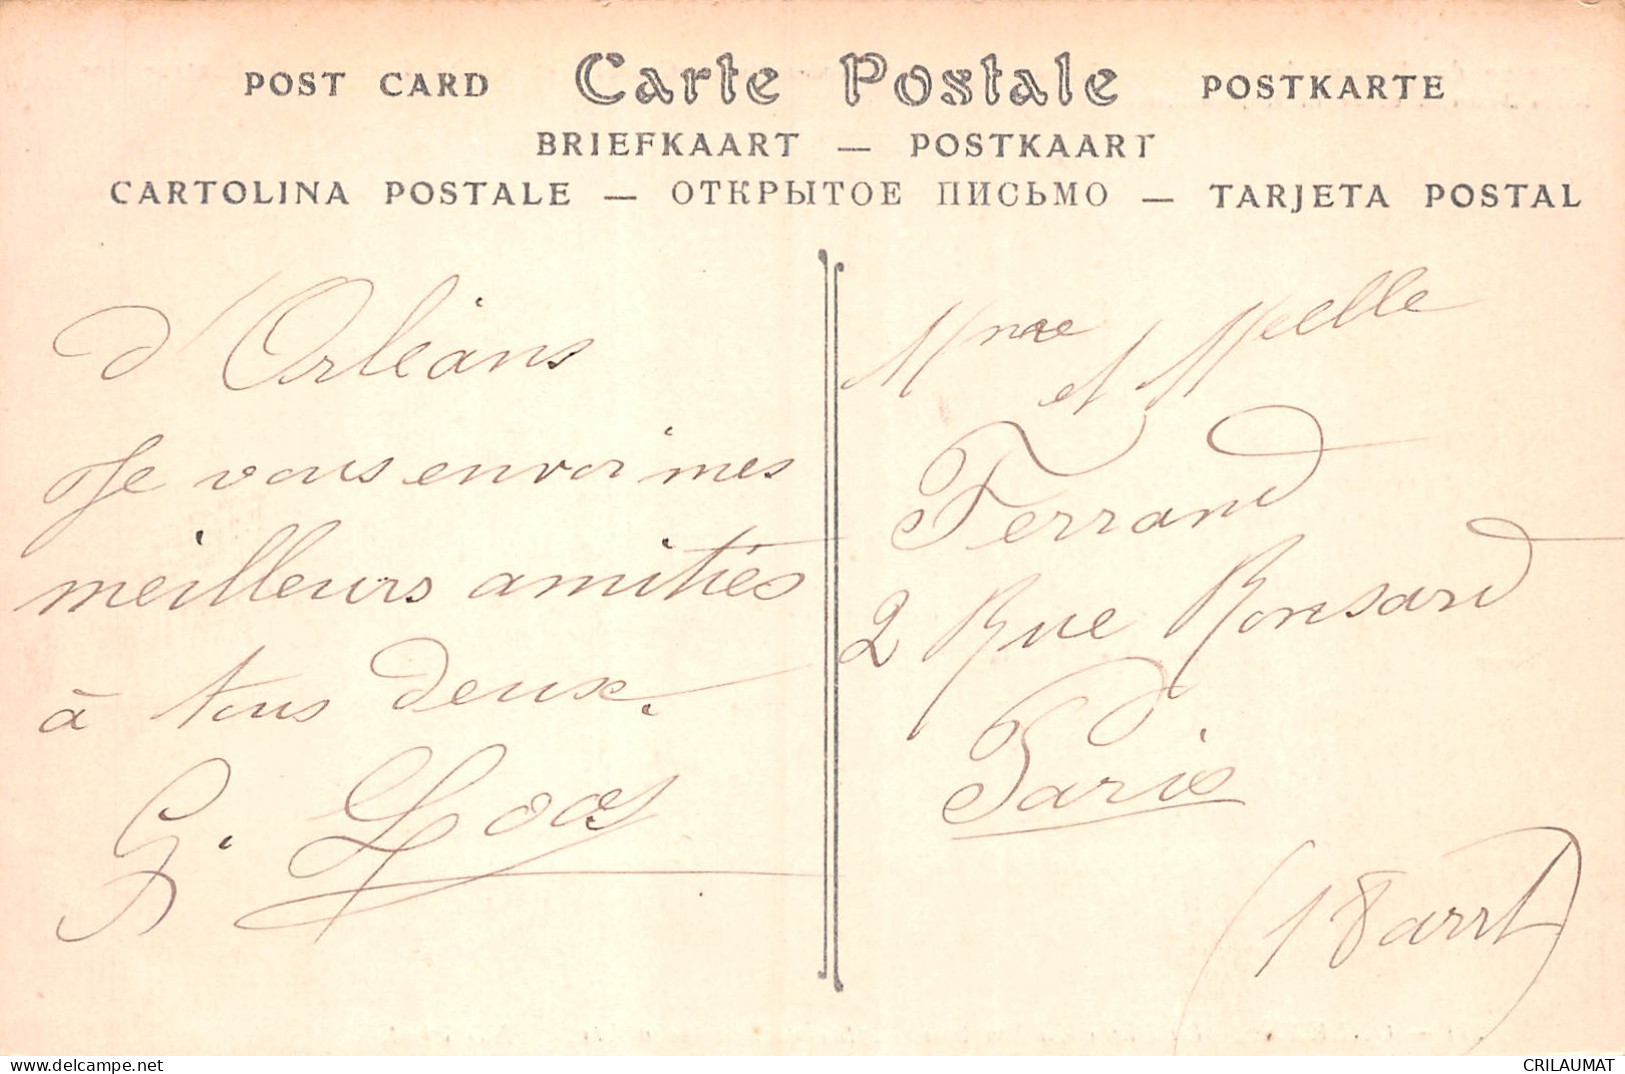 POST CARD Carte Postale POSTKARTE
BRIEFKAART — POSTKAART
CARTOLINA POSTALE — ОТКРЫТОЕ ПИСЬМО — TARJETA POSTAL
d'Orléans
Je vous envoi mes
meilleurs amitiés
à tous deux.
G. Loos
Mme et Melle
Ferrand
2 Rue Ronsard
Paris
(18 arrt)
CRILAUMAT